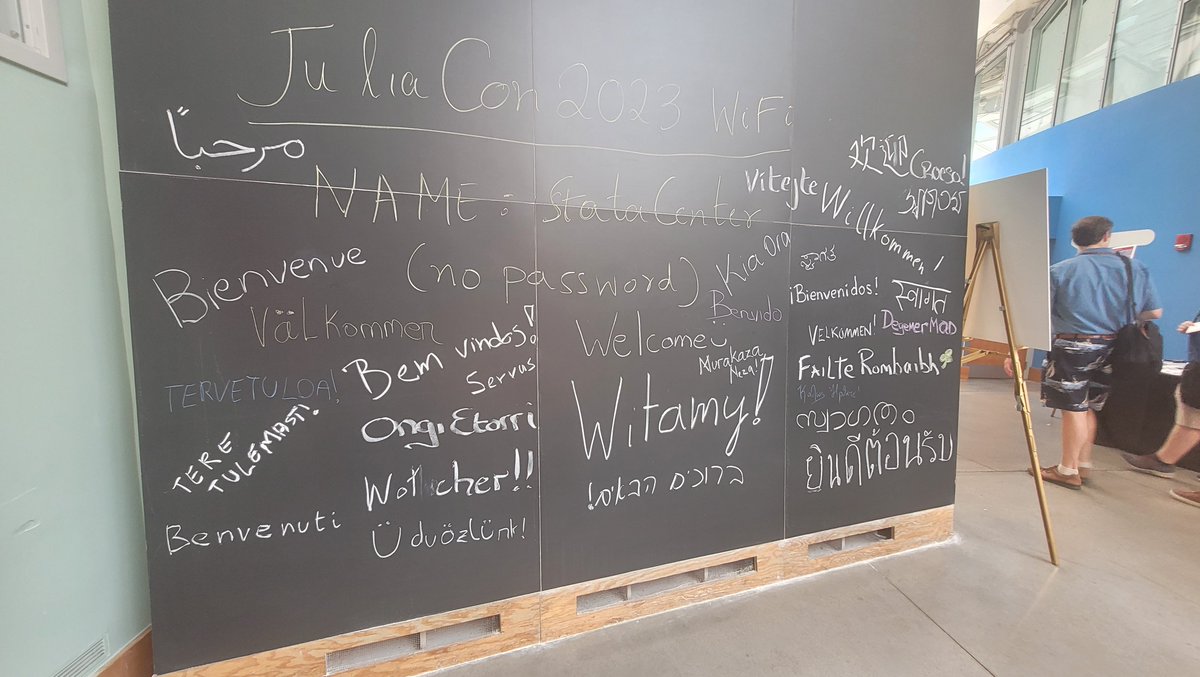 JuliaCon 2023 WiFi
مرحبًا
NAME : StataCenter
(no password)
Bienvenue
Välkommen
TERVETULOA!
TERE
TULEMAST!
Benvenuti
Bem vindos!
Servus
Ongi Etorri
Wotcher!!
Üdvözlünk!
Kia Ora
Benvido
Welcome
Murakaza
Neza!
Witamy!
ברוכים הבאים!
Vitejte
Willkommen!
Croeso!
¡Bienvenidos!
स्वागत
VELKOMMEN!
Degemer Mad
Failte Romhaibh
സ്വാഗതം
ยินดีต้อนรับ